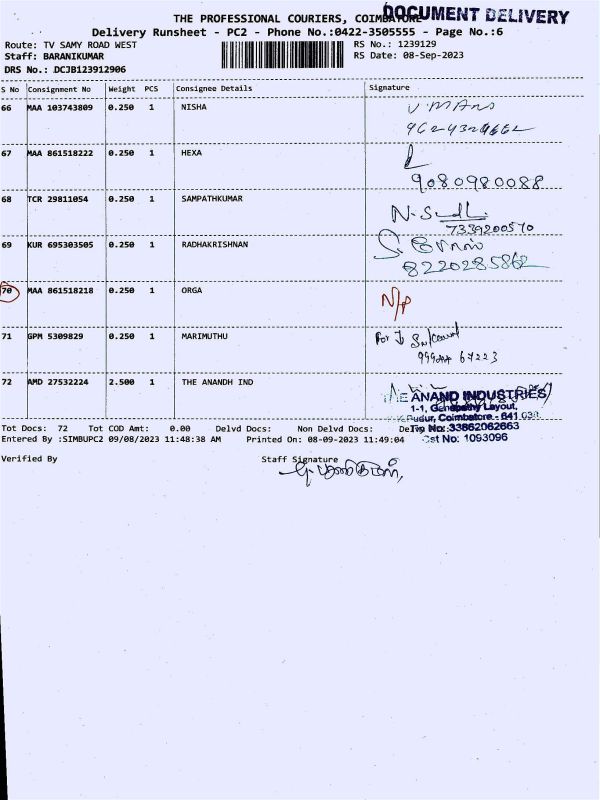 THE PROFESSIONAL COURIERS, COIMBATORE
DOCUMENT DELIVERY
Delivery Runsheet - PC2 - Phone No.:0422-3505555 - Page No.:6
Route: TV SAMY ROAD WEST RS No.: 1239129
Staff: BARANIKUMAR RS Date: 08-Sep-2023
DRS No.: DCJB123912906
S No Consignment No Weight PCS Consignee Details Signature
66 MAA 103743809 0.250 1 NISHA
67 MAA 861518222 0.250 1 HEXA
9080980088
68 TCR 29811054 0.250 1 SAMPATHKUMAR
7339200570
69 KUR 695303505 0.250 1 RADHAKRISHNAN
8220285862
70 MAA 861518218 0.250 1 ORGA N/P
71 GPM 5309829 0.250 1 MARIMUTHU For
72 AMD 27532224 2.500 1 THE ANANDH IND
THE ANAND INDUSTRIES
1-1, Ganapathy Layout,
K.K.Pudur, Coimbatore - 641 038.
Tin No: 33862062663
Cst No: 1093096
Tot Docs: 72 Tot COD Amt: 0.00 Delvd Docs: Non Delvd Docs:
Entered By :SIMBUPC2 09/08/2023 11:48:38 AM Printed On: 08-09-2023 11:49:04
Verified By Staff Signature